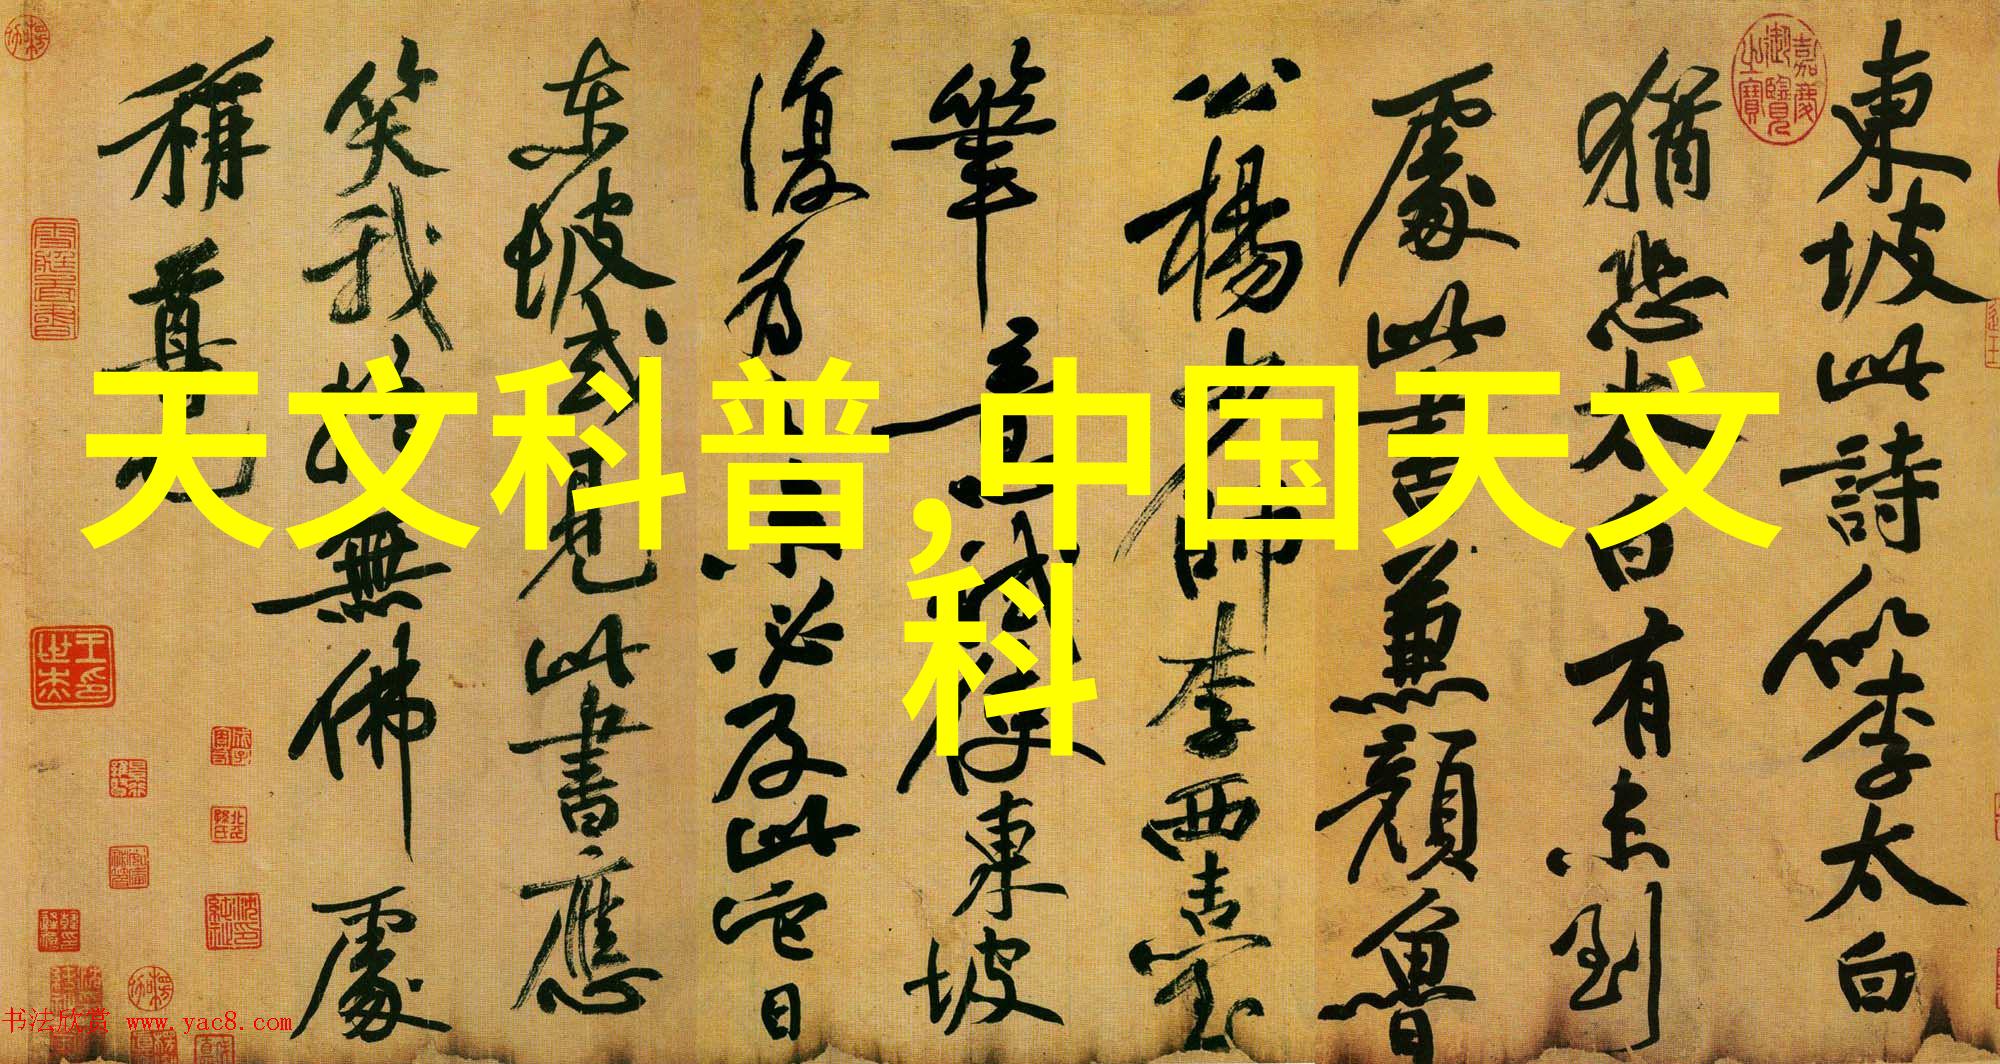 東坡此詩似李太白
猶恐太白有未到
處此書兼顏魯
公楊少師李西臺
筆意試使東坡
復為之未必及此它日
東坡或見此書應
笑我於無佛處
稱尊也
天文科普,中国天文
科
嘉慶御覽之寶
王世杰印
书法欣赏 www.yac8.com